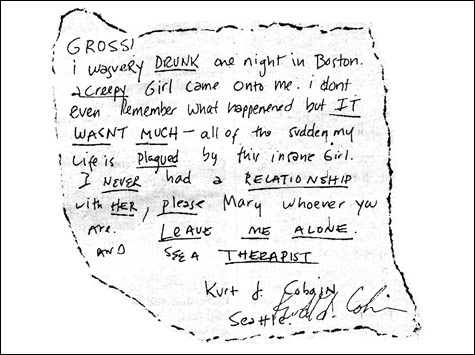 GROSS!
i was very DRUNK one night in Boston.
a creepy Girl came onto me. i dont
even Remember what happenened but IT
WASNT MUCH – all of the sudden, my
Life is plagued by this insane Girl.
I NEVER had a RELATIONSHIP
with HER, please Mary whoever you
are. LEAVE ME ALONE.
AND SEE A THERAPIST
Kurt d. Cobain
Seattle. Kurt d. Cobain